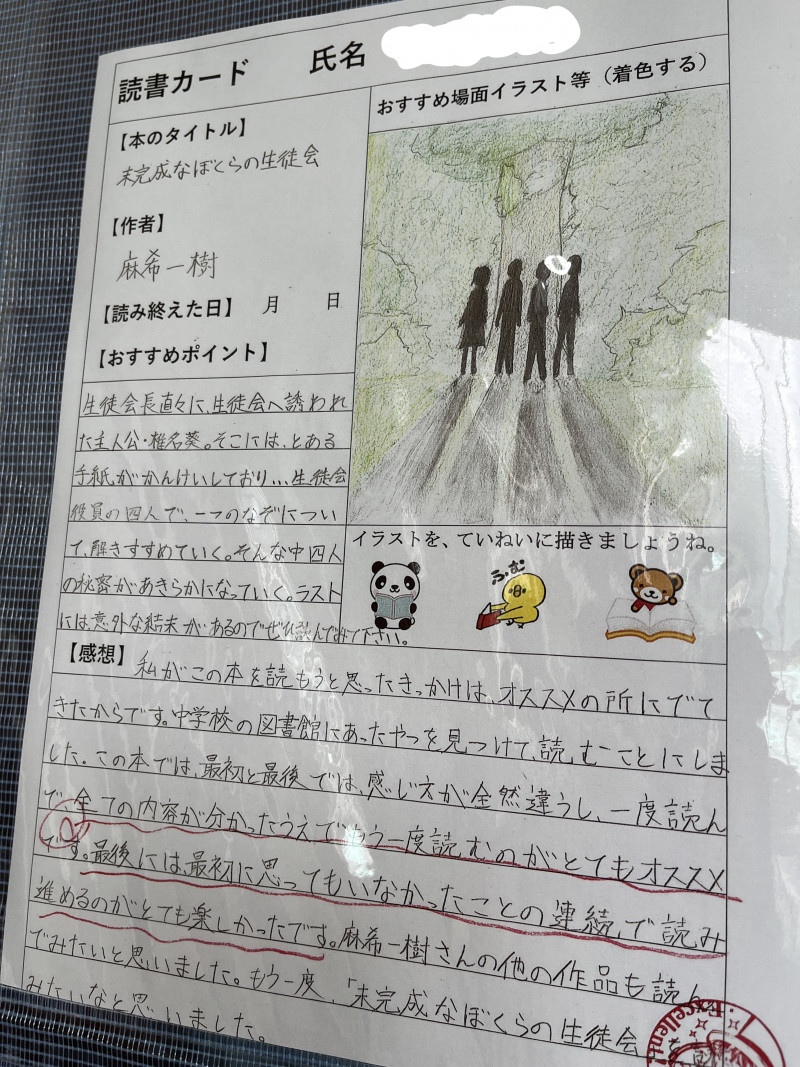 読書カード　氏名
【本のタイトル】
未完成なぼくらの生徒会
【作者】
麻希一樹
【読み終えた日】　月　日
【おすすめポイント】
生徒会長直々に、生徒会へ誘われ
た主人公・椎名葵。そこには、とある
手紙がかんけいしており…生徒会
役員の四人で、一つのなぞについ
て、解きすすめていく。そんな中四人
の秘密があきらかになっていく。ラスト
には意外な結末があるのでぜひ読んでみて下さい。
おすすめ場面イラスト等（着色する）
イラストを、ていねいに描きましょうね。
ふむ
【感想】
私がこの本を読もうと思ったきっかけは、オススメの所にでて
きたからです。中学校の図書館にあったやつを見つけて、読むことにしま
した。この本では、最初と最後では、感じ方が全然違うし、一度読ん
で、全ての内容が分かったうえでもう一度読むのがとてもオススメ
です。最後には、最初に思ってもいなかったことの連続で読み
進めるのがとても楽しかったです。麻希一樹さんの他の作品も読ん
でみたいと思いました。もう一度、「未完成なぼくらの生徒会
みたいなと思いました。
Excellent!